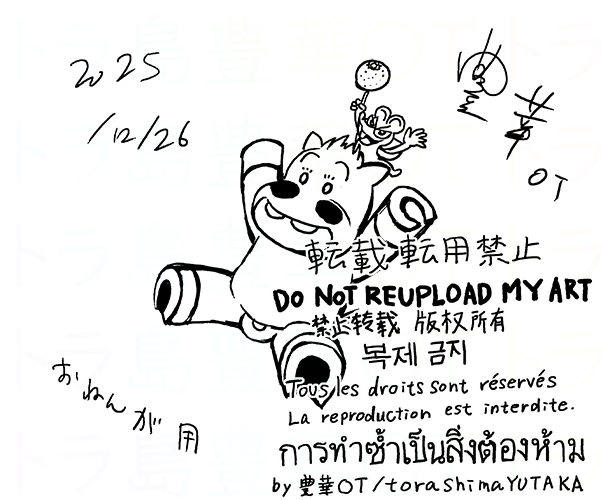 2025
/12/26
OT
転載転用禁止
DO NOT REUPLOAD MY ART
禁止转载 版权所有
복제 금지
Tous les droits sont réservés
La reproduction est interdite.
การทำซ้ำเป็นสิ่งต้องห้าม
by 豊華OT/torashimaYUTAKA
おねんが用